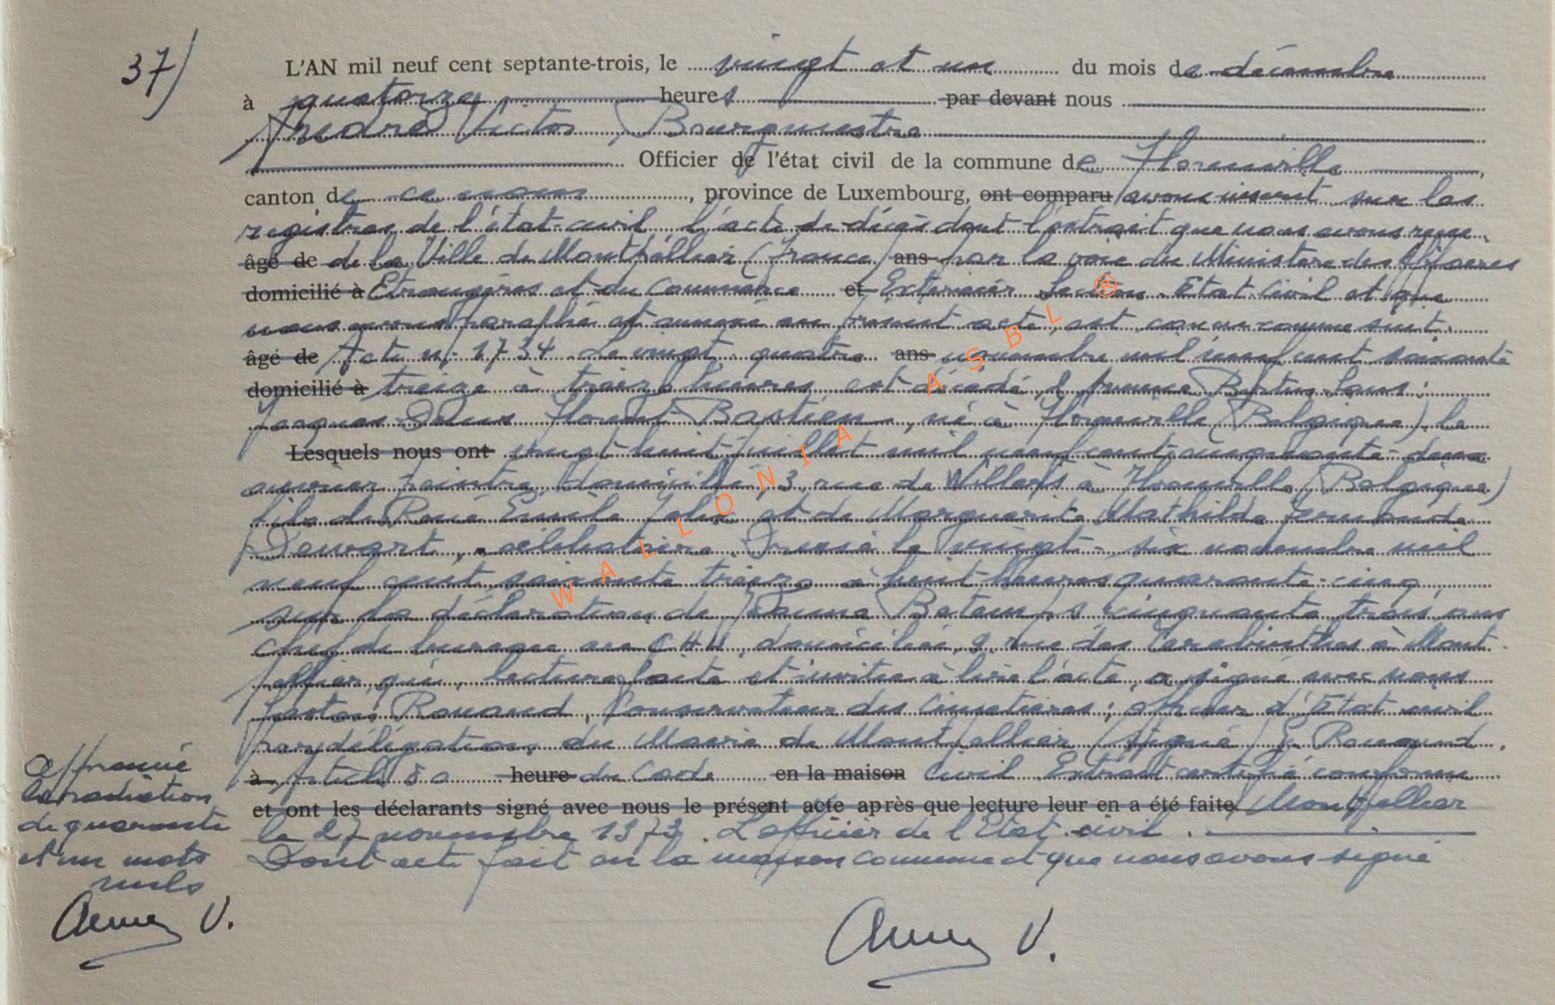 37)
L'AN mil neuf cent septante-trois, le vingt et un du mois de décembre
à quatorze heures par devant nous
André Victor Bourguestre
Officier de l'état civil de la commune de Florenville,
canton de ce nom, province de Luxembourg, ont comparu avons inscrit sur les
registres de l'état-civil l'acte de décès dont l'extrait que nous avons reçu
âgé de de la Ville de Montpellier (France) ans par la voie du Ministère des Affaires
domicilié à Etrangères et du Commerce et Extérieur Section Etat-Civil et que
nous avons paraphé et annexé au présent acte, est conçu comme suit.
âgé de Acte n° 1734. Le vingt-quatre ans novembre mil neuf cent soixante
domicilié à treize à treize heures est décédé,
Jacques Florent Bastien, né à Florenville (Belgique) le
Lesquels nous ont vingt-huit juillet mil neuf cent cinquante-deux
ouvrier peintre, domicilié, 3, rue de Willers à Florenville (Belgique)
fils de René Emile Jules et de Marguerite Mathilde Fernande
célibataire. Dressé le vingt-six novembre mil
neuf cent soixante treize à huit heures quarante-cinq
sur la déclaration de cinquante trois ans
chef de bureau au CHU, domicilié, 9 rue des Térébinthes à Mont
pellier, qui, lecture faite et invité à lire l'acte, a signé avec nous
Gaston Rouaud, Conservateur des Cimetières; officier d'Etat civil
par délégation du Maire de Montpellier (signé) G. Rouaud.
à Article 80 heure du Code en la maison Civil Extrait certifié conforme
et ont les déclarants signé avec nous le présent acte après que lecture leur en a été faite Montpellier
le 27 novembre 1973. L'officier de l'Etat civil.
Dont acte fait en la maison commune et que nous avons signé
approuvé
la radiation
de quarante
et un mots
nuls
V.
V.
WALLONIA ASBL ®